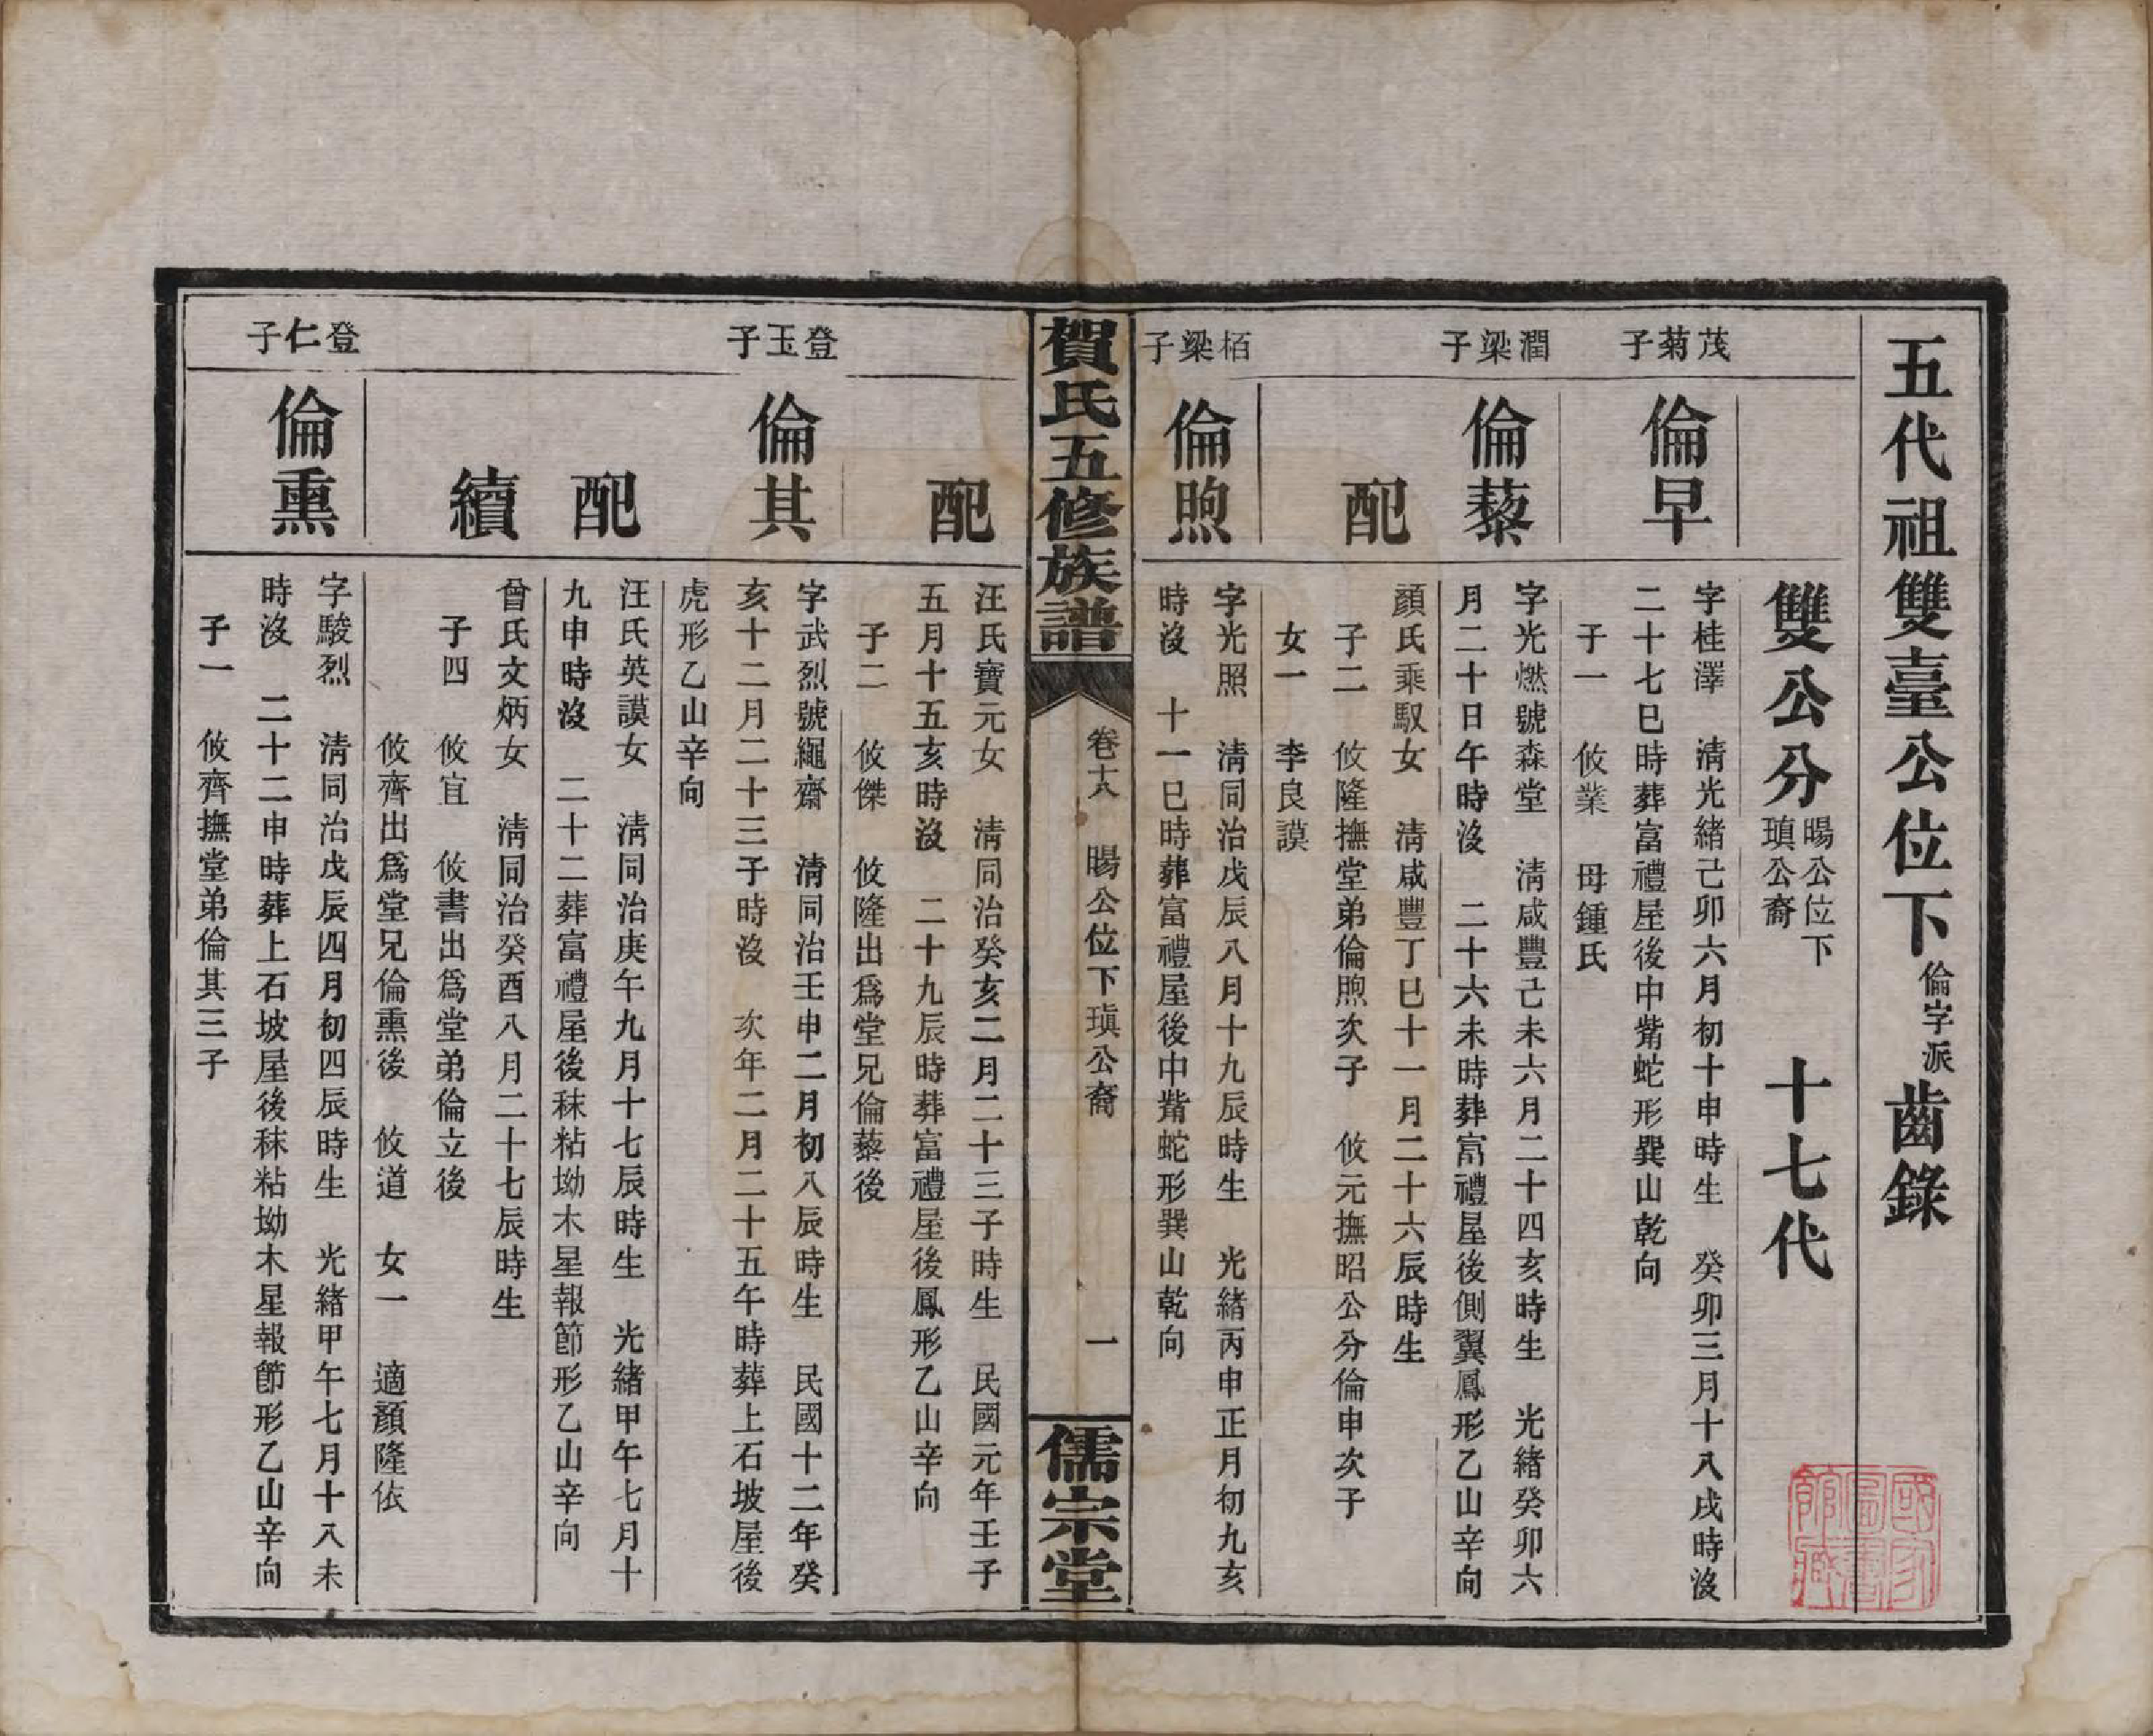 五代祖雙臺公位下倫字派齒錄
雙公分暘公位下瑱公裔　十七代
茂菊子
倫早
字桂澤　清光緒己卯六月初十申時生　癸卯三月十八戌時沒
二十七巳時葬富禮屋後中觜蛇形巽山乾向
子一　攸業　母鍾氏
潤梁子
倫藜
字光燃號森堂　清咸豐己未六月二十四亥時生　光緒癸卯六
月二十日午時沒　二十六未時葬富禮屋後側翼鳳形乙山辛向
配
顏氏乘馭女　清咸豐丁巳十一月二十六辰時生
子二　攸隆撫堂弟倫煦次子　攸元撫昭公分倫申次子
女一　李良謨
栢梁子
倫煦
字光照　清同治戊辰八月十九辰時生　光緒丙申正月初九亥
時沒　十一巳時葬富禮屋後中觜蛇形巽山乾向
賀氏五修族譜
卷十六　暘公位下瑱公裔　一
儒宗堂
配
汪氏寶元女　清同治癸亥二月二十三子時生　民國元年壬子
五月十五亥時沒　二十九辰時葬富禮屋後鳳形乙山辛向
子二　攸傑　攸隆出爲堂兄倫藜後
登玉子
倫其
字武烈號繩齋　清同治壬申二月初八辰時生　民國十二年癸
亥十二月二十三子時沒　次年二月二十五午時葬上石坡屋後
虎形乙山辛向
配
汪氏英謨女　清同治庚午九月十七辰時生　光緒甲午七月十
九申時沒　二十二葬富禮屋後秣粘坳木星報節形乙山辛向
續
曾氏文炳女　清同治癸酉八月二十七辰時生
子四　攸宜　攸書出爲堂弟倫立後
攸齊出爲堂兄倫熏後　攸道　女一　適顏隆依
登仁子
倫熏
字駿烈　清同治戊辰四月初四辰時生　光緒甲午七月十八未
時沒　二十二申時葬上石坡屋後秣粘坳木星報節形乙山辛向
子一　攸齊撫堂弟倫其三子
國家圖書館藏